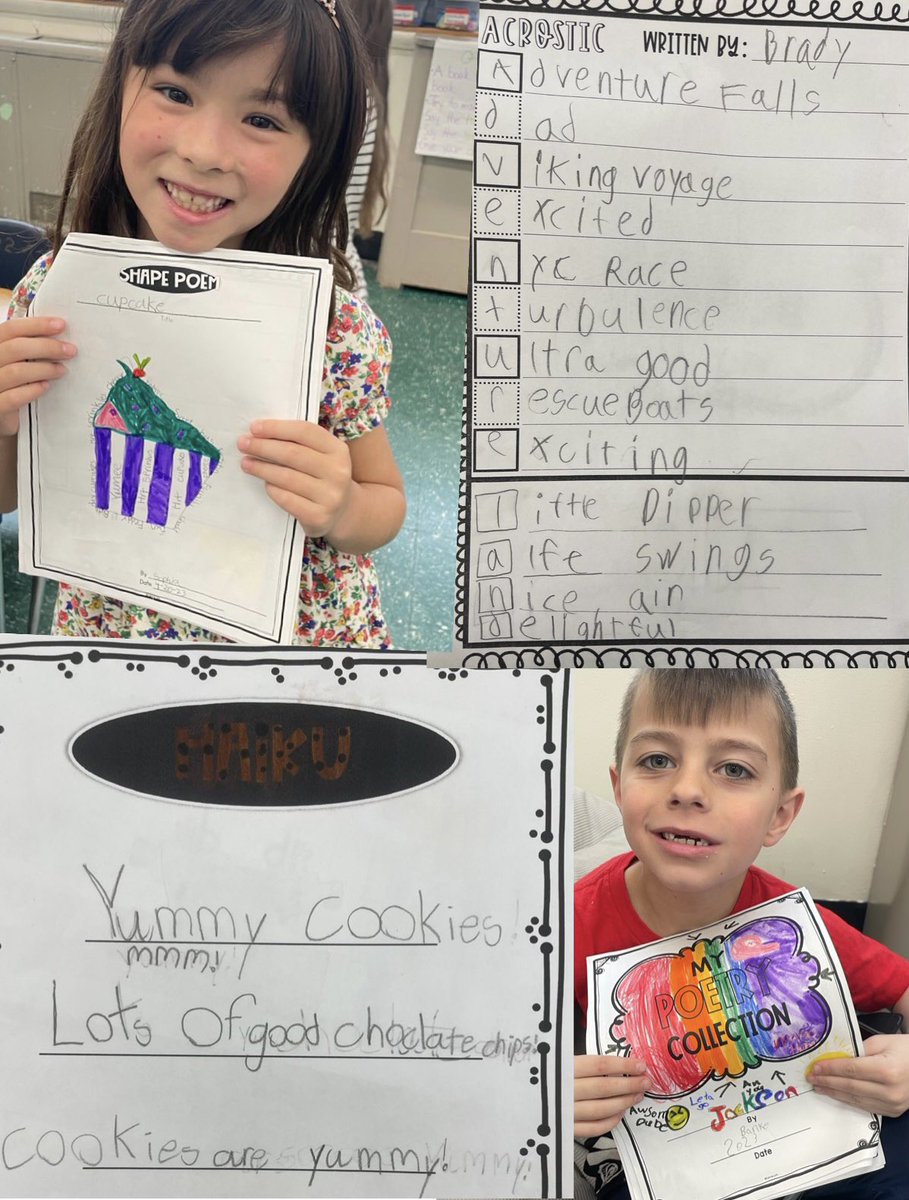 SHAPE POEM
cupcake
title
Yumee
By Sophia
Date 4-20-23
A book
Book
ACROSTIC WRITTEN BY: Brady
Adventure Falls
dad
viking voyage
excited
nyc Race
turbulence
ultra good
rescue Boats
exciting
little Dipper
alfe swings
nice air
delightful
HAIKU
Yummy Cookies!
mmm!
Lots of good choclate chips!
Cookies are yummy!
MY
POETRY
COLLECTION
Awsom Lets go An you
Dube Jackson
By
2023
Date